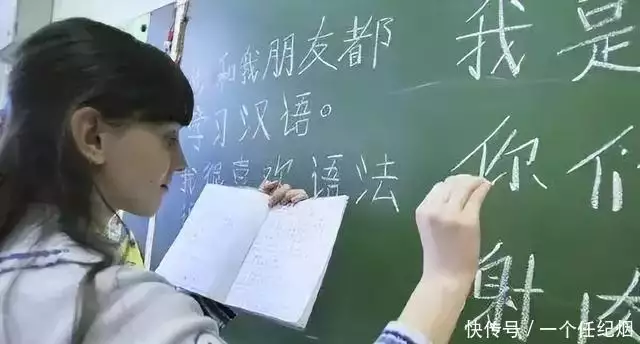 和我朋友都
学习汉语。
我很喜欢语法
我是
你们
快传号/一个任纪烟